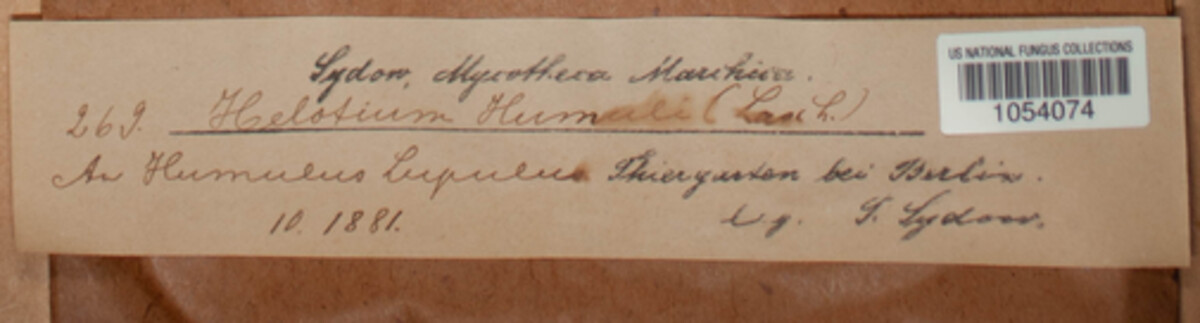 Sydow, Mycotheca Marchica.
US NATIONAL FUNGUS COLLECTIONS
1054074
269. Helotium Humuli (Lasch.)
An Humulus Lupulus Thiergarten bei Berlin.
10. 1881. leg. P. Sydow.